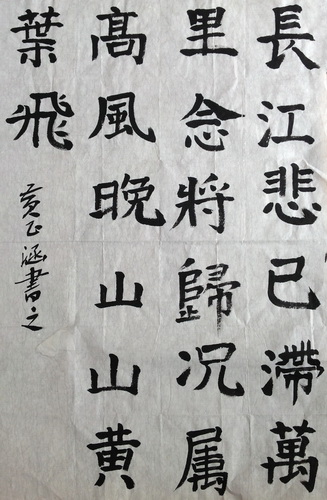 長江悲已滯萬
里念將歸况属
高風晚山山黄
葉飛
黄正涵書之